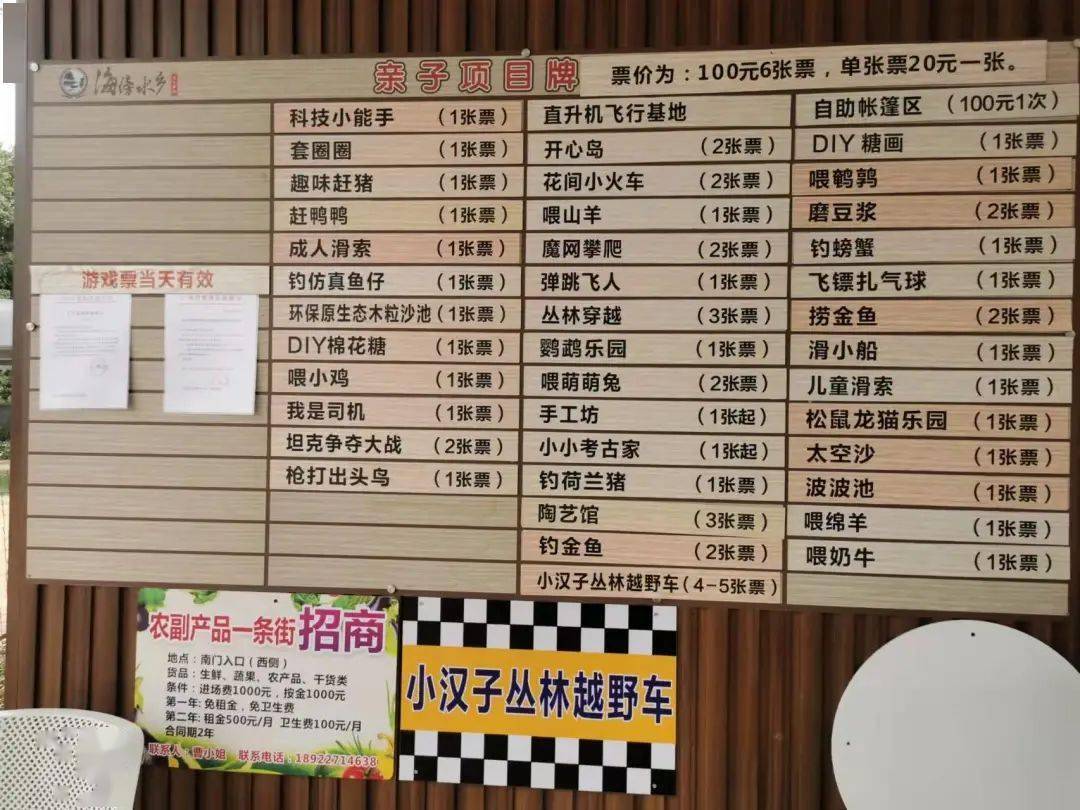 海傍水乡
亲子项目牌
票价为：100元6张票，单张票20元一张。
游戏票当天有效
科技小能手（1张票）
套圈圈（1张票）
趣味赶猪（1张票）
赶鸭鸭（1张票）
成人滑索（1张票）
钓仿真鱼仔（1张票）
环保原生态木粒沙池（1张票）
DIY棉花糖（1张票）
喂小鸡（1张票）
我是司机（1张票）
坦克争夺大战（2张票）
枪打出头鸟（1张票）
直升机飞行基地
开心岛（2张票）
花间小火车（2张票）
喂山羊（1张票）
魔网攀爬（2张票）
弹跳飞人（1张票）
丛林穿越（3张票）
鹦鹉乐园（1张票）
喂萌萌兔（2张票）
手工坊（1张起）
小小考古家（1张起）
钓荷兰猪（1张票）
陶艺馆（3张票）
钓金鱼（2张票）
小汉子丛林越野车（4-5张票）
自助帐篷区（100元1次）
DIY糖画（1张票）
喂鹌鹑（1张票）
磨豆浆（2张票）
钓螃蟹（1张票）
飞镖扎气球（1张票）
捞金鱼（2张票）
滑小船（1张票）
儿童滑索（1张票）
松鼠龙猫乐园（1张票）
太空沙（1张票）
波波池（1张票）
喂绵羊（1张票）
喂奶牛（1张票）
农副产品一条街招商
地点：南门入口（西侧）
货品：生鲜、蔬果、农产品、干货类
条件：进场费1000元，按金1000元
第一年：免租金，免卫生费
第二年：租金500元/月 卫生费100元/月
合同期2年
联系人：曹小姐 联系电话：18922714638
小汉子丛林越野车